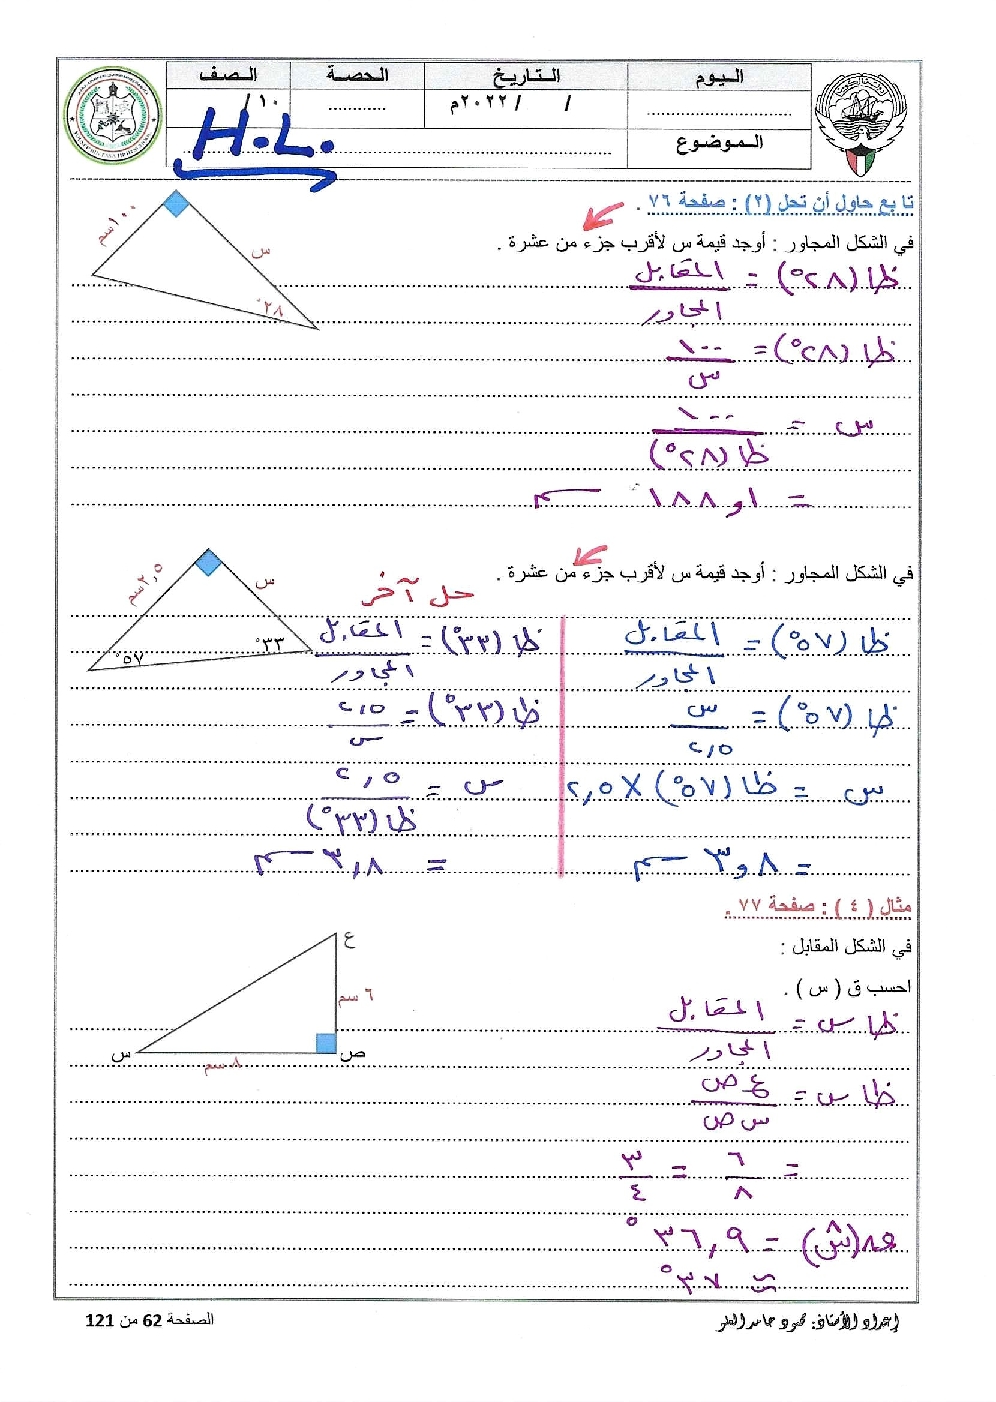 اليوم التاريخ الحصة الصف
................ / / ٢٠٢٢م ........... ١٠ /
الموضوع H.L.
تابع حاول أن تحل (٢) : صفحة ٧٦ .
في الشكل المجاور : أوجد قيمة س لأقرب جزء من عشرة .
١٠٠سم
س
٢٨°
ظا (٢٨°) = المقابل / المجاور
ظا (٢٨°) = ١٠٠ / س
س = ١٠٠ / ظا (٢٨°)
= ١و١٨٨ سم
في الشكل المجاور : أوجد قيمة س لأقرب جزء من عشرة .
٢,٥سم
س
٥٧°
٣٣°
ظا (٥٧°) = المقابل / المجاور
ظا (٥٧°) = س / ٢,٥
س = ظا (٥٧°) × ٢,٥
= ٨و٣ سم
حل آخر
ظا (٣٣°) = المقابل / المجاور
ظا (٣٣°) = ٢,٥ / س
س = ٢,٥ / ظا (٣٣°)
= ٣,٨ سم
مثال ( ٤ ) : صفحة ٧٧ .
في الشكل المقابل :
احسب ق ( س ) .
ع
٦ سم
ص
س
٨ سم
ظا س = المقابل / المجاور
ظا س = ع ص / س ص
= ٦ / ٨ = ٣ / ٤
ق(س) = ٣٦,٩°
≃ ٣٧°
إعداد الأستاذ: محمود حامد العلو
الصفحة 62 من 121